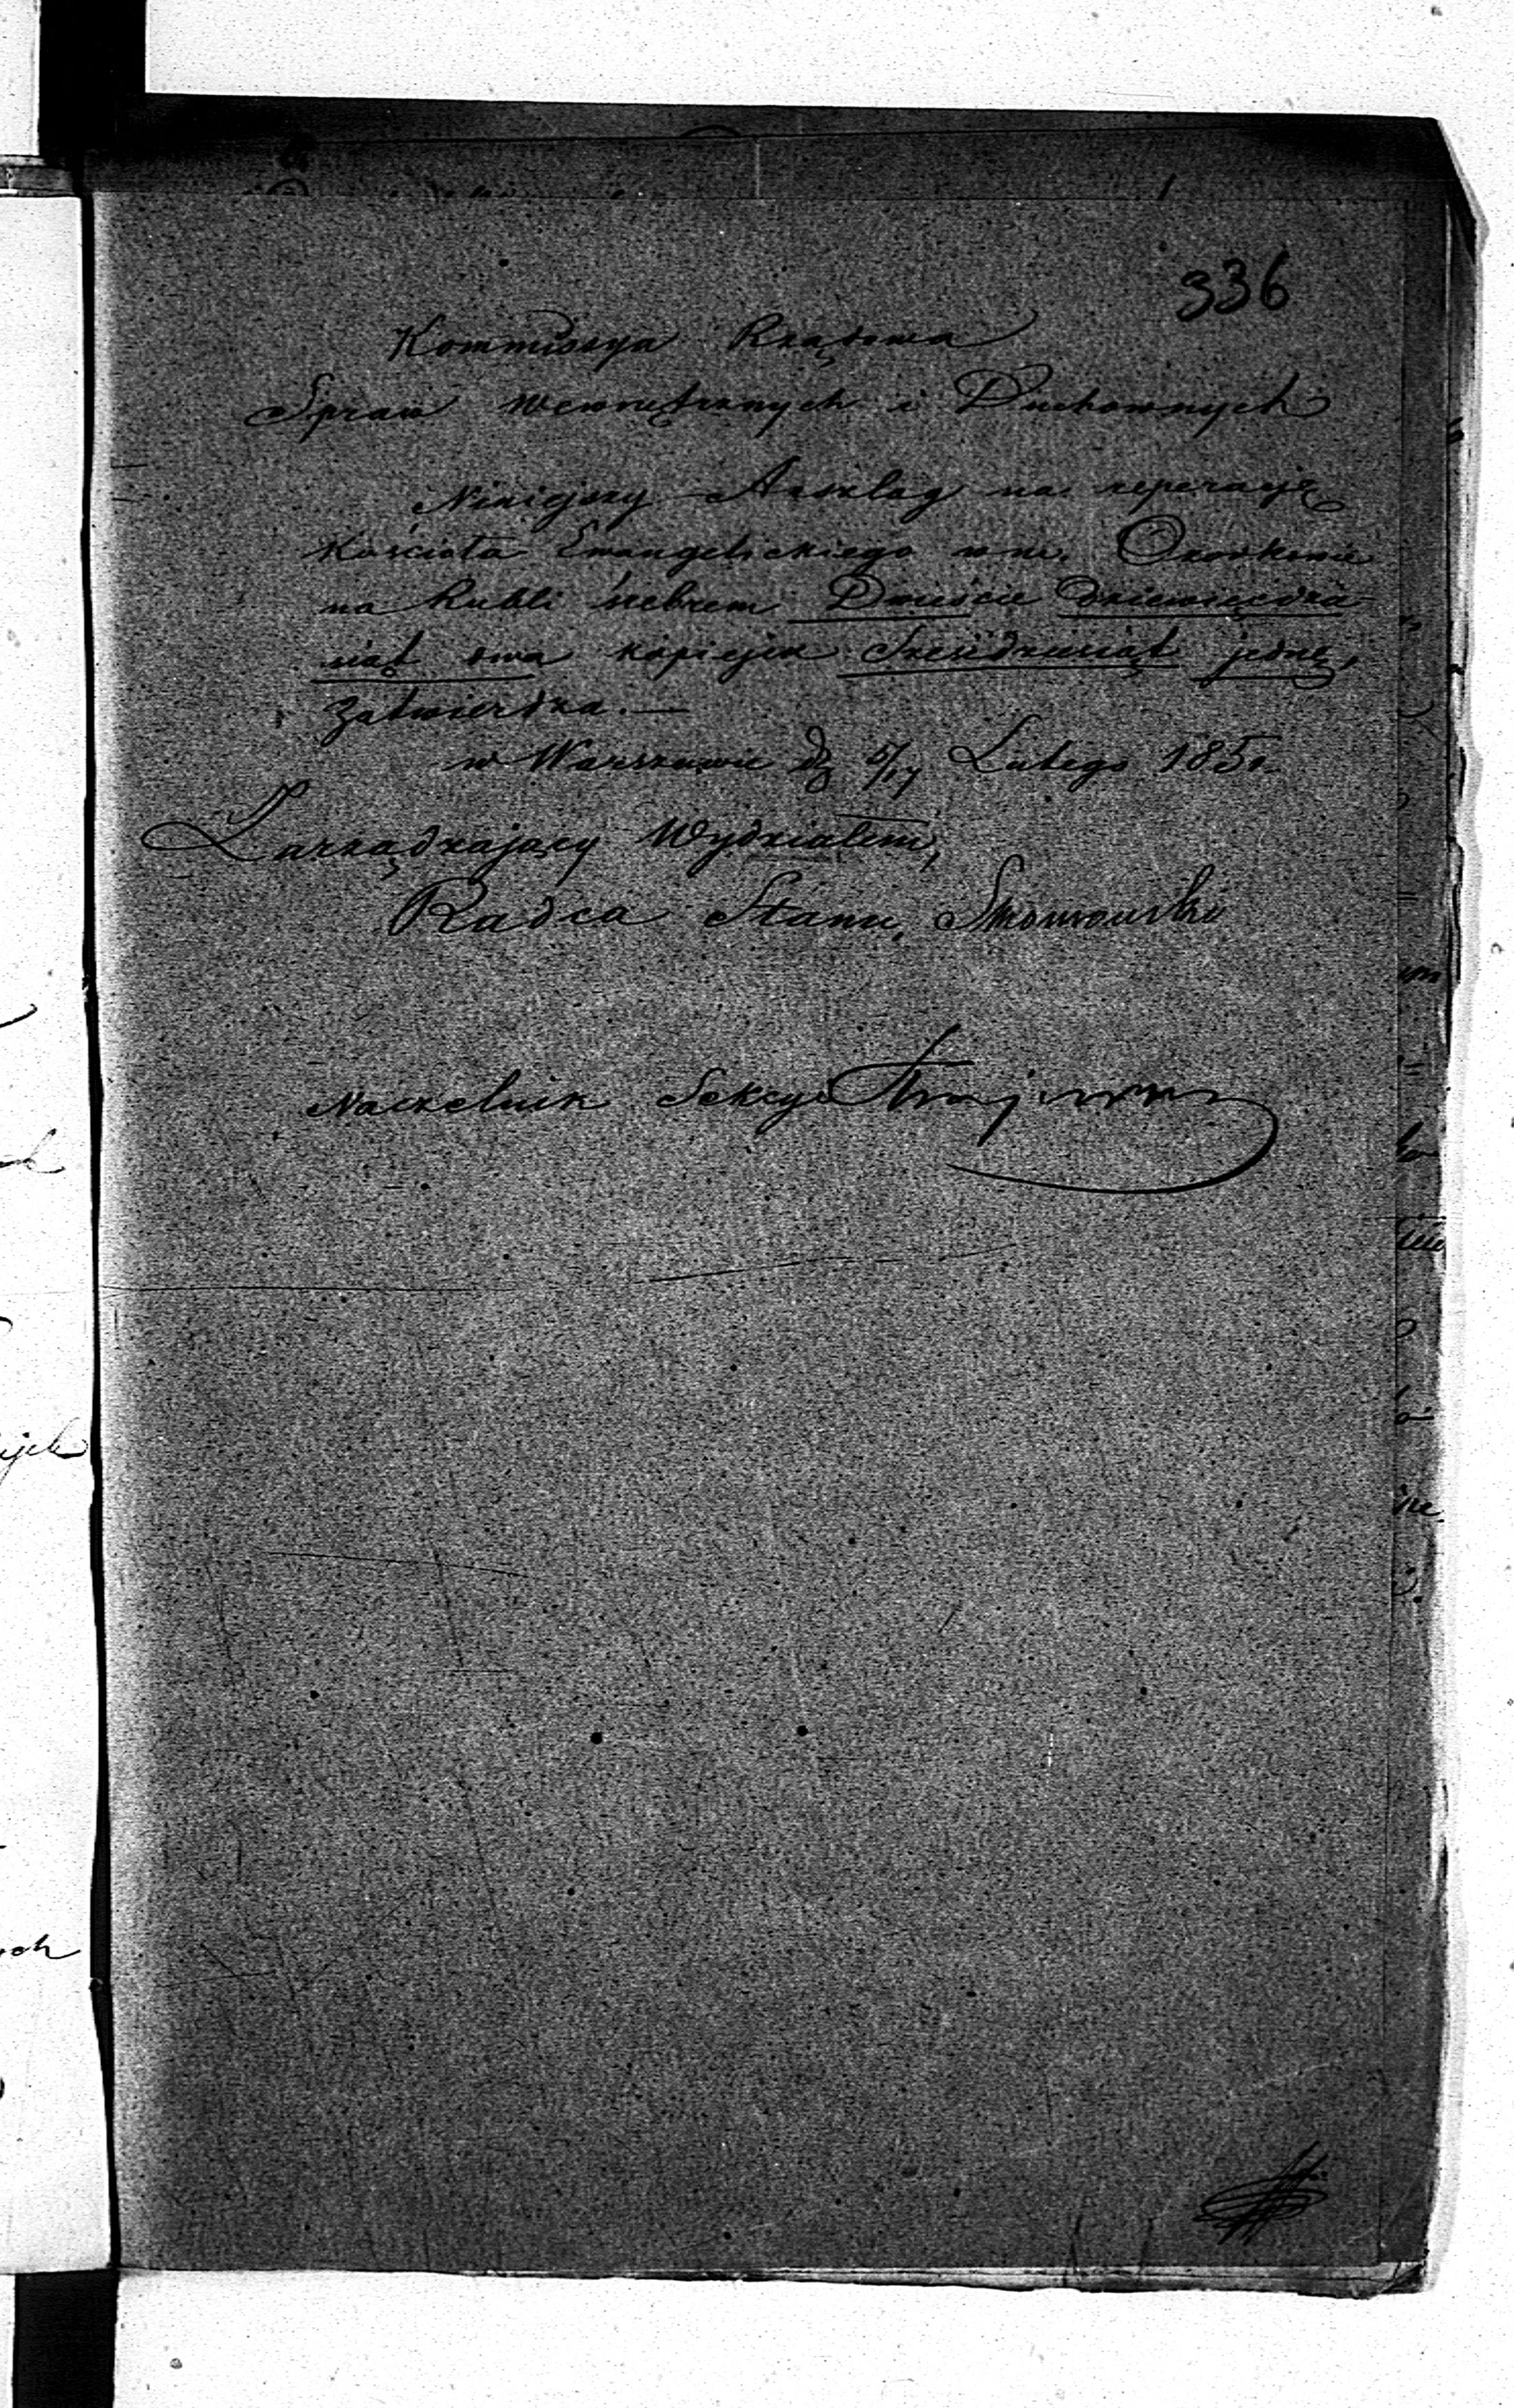 336
Kommissya Rządowa
Spraw Wewnętrznych i Duchownych
Niniejszy Anszlag na reperacyą
Kościoła Ewangelickiego w m. Ozorkowie
na Rubli srebrem Dwieście dziewięćdzie-
siąt dwa kopiejek Sześćdziesiąt jedną,
Zatwierdza. —
w Warszawie d. 5/17 Lutego 185
Zarządzający Wydziałem,
Radca Stanu,
Naczelnik Sekcyi